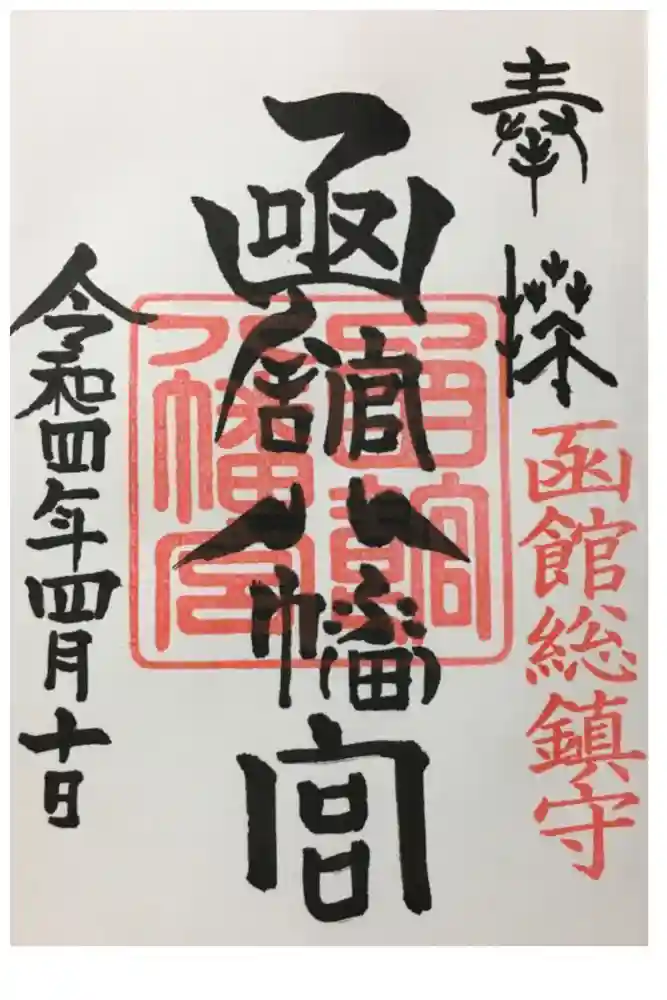 奉拝
函館総鎮守
函館八幡宮
函館八幡宮
令和四年四月十日